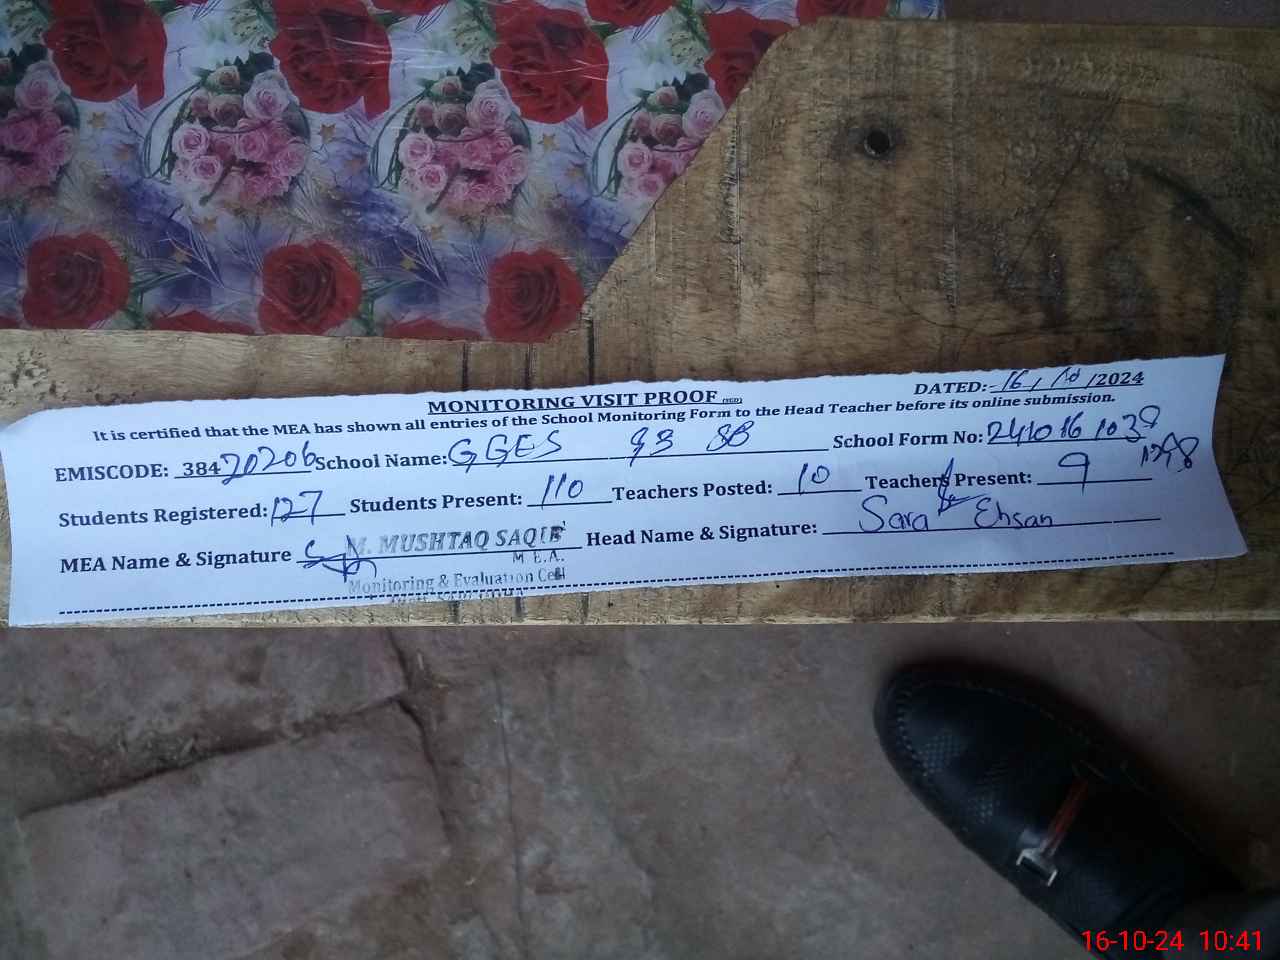 MONITORING VISIT PROOF
DATED:- 16/10/2024
It is certified that the MEA has shown all entries of the School Monitoring Form to the Head Teacher before its online submission.
EMISCODE: 38420206 School Name: GGES 93 SB School Form No: 2410161038
1298
Students Registered: 127 Students Present: 110 Teachers Posted: 10 Teachers Present: 9
MEA Name & Signature M. MUSHTAQ SAQIB Head Name & Signature: Sara Ehsan
M.E.A.
Monitoring & Evaluation Cell
16-10-24 10:41